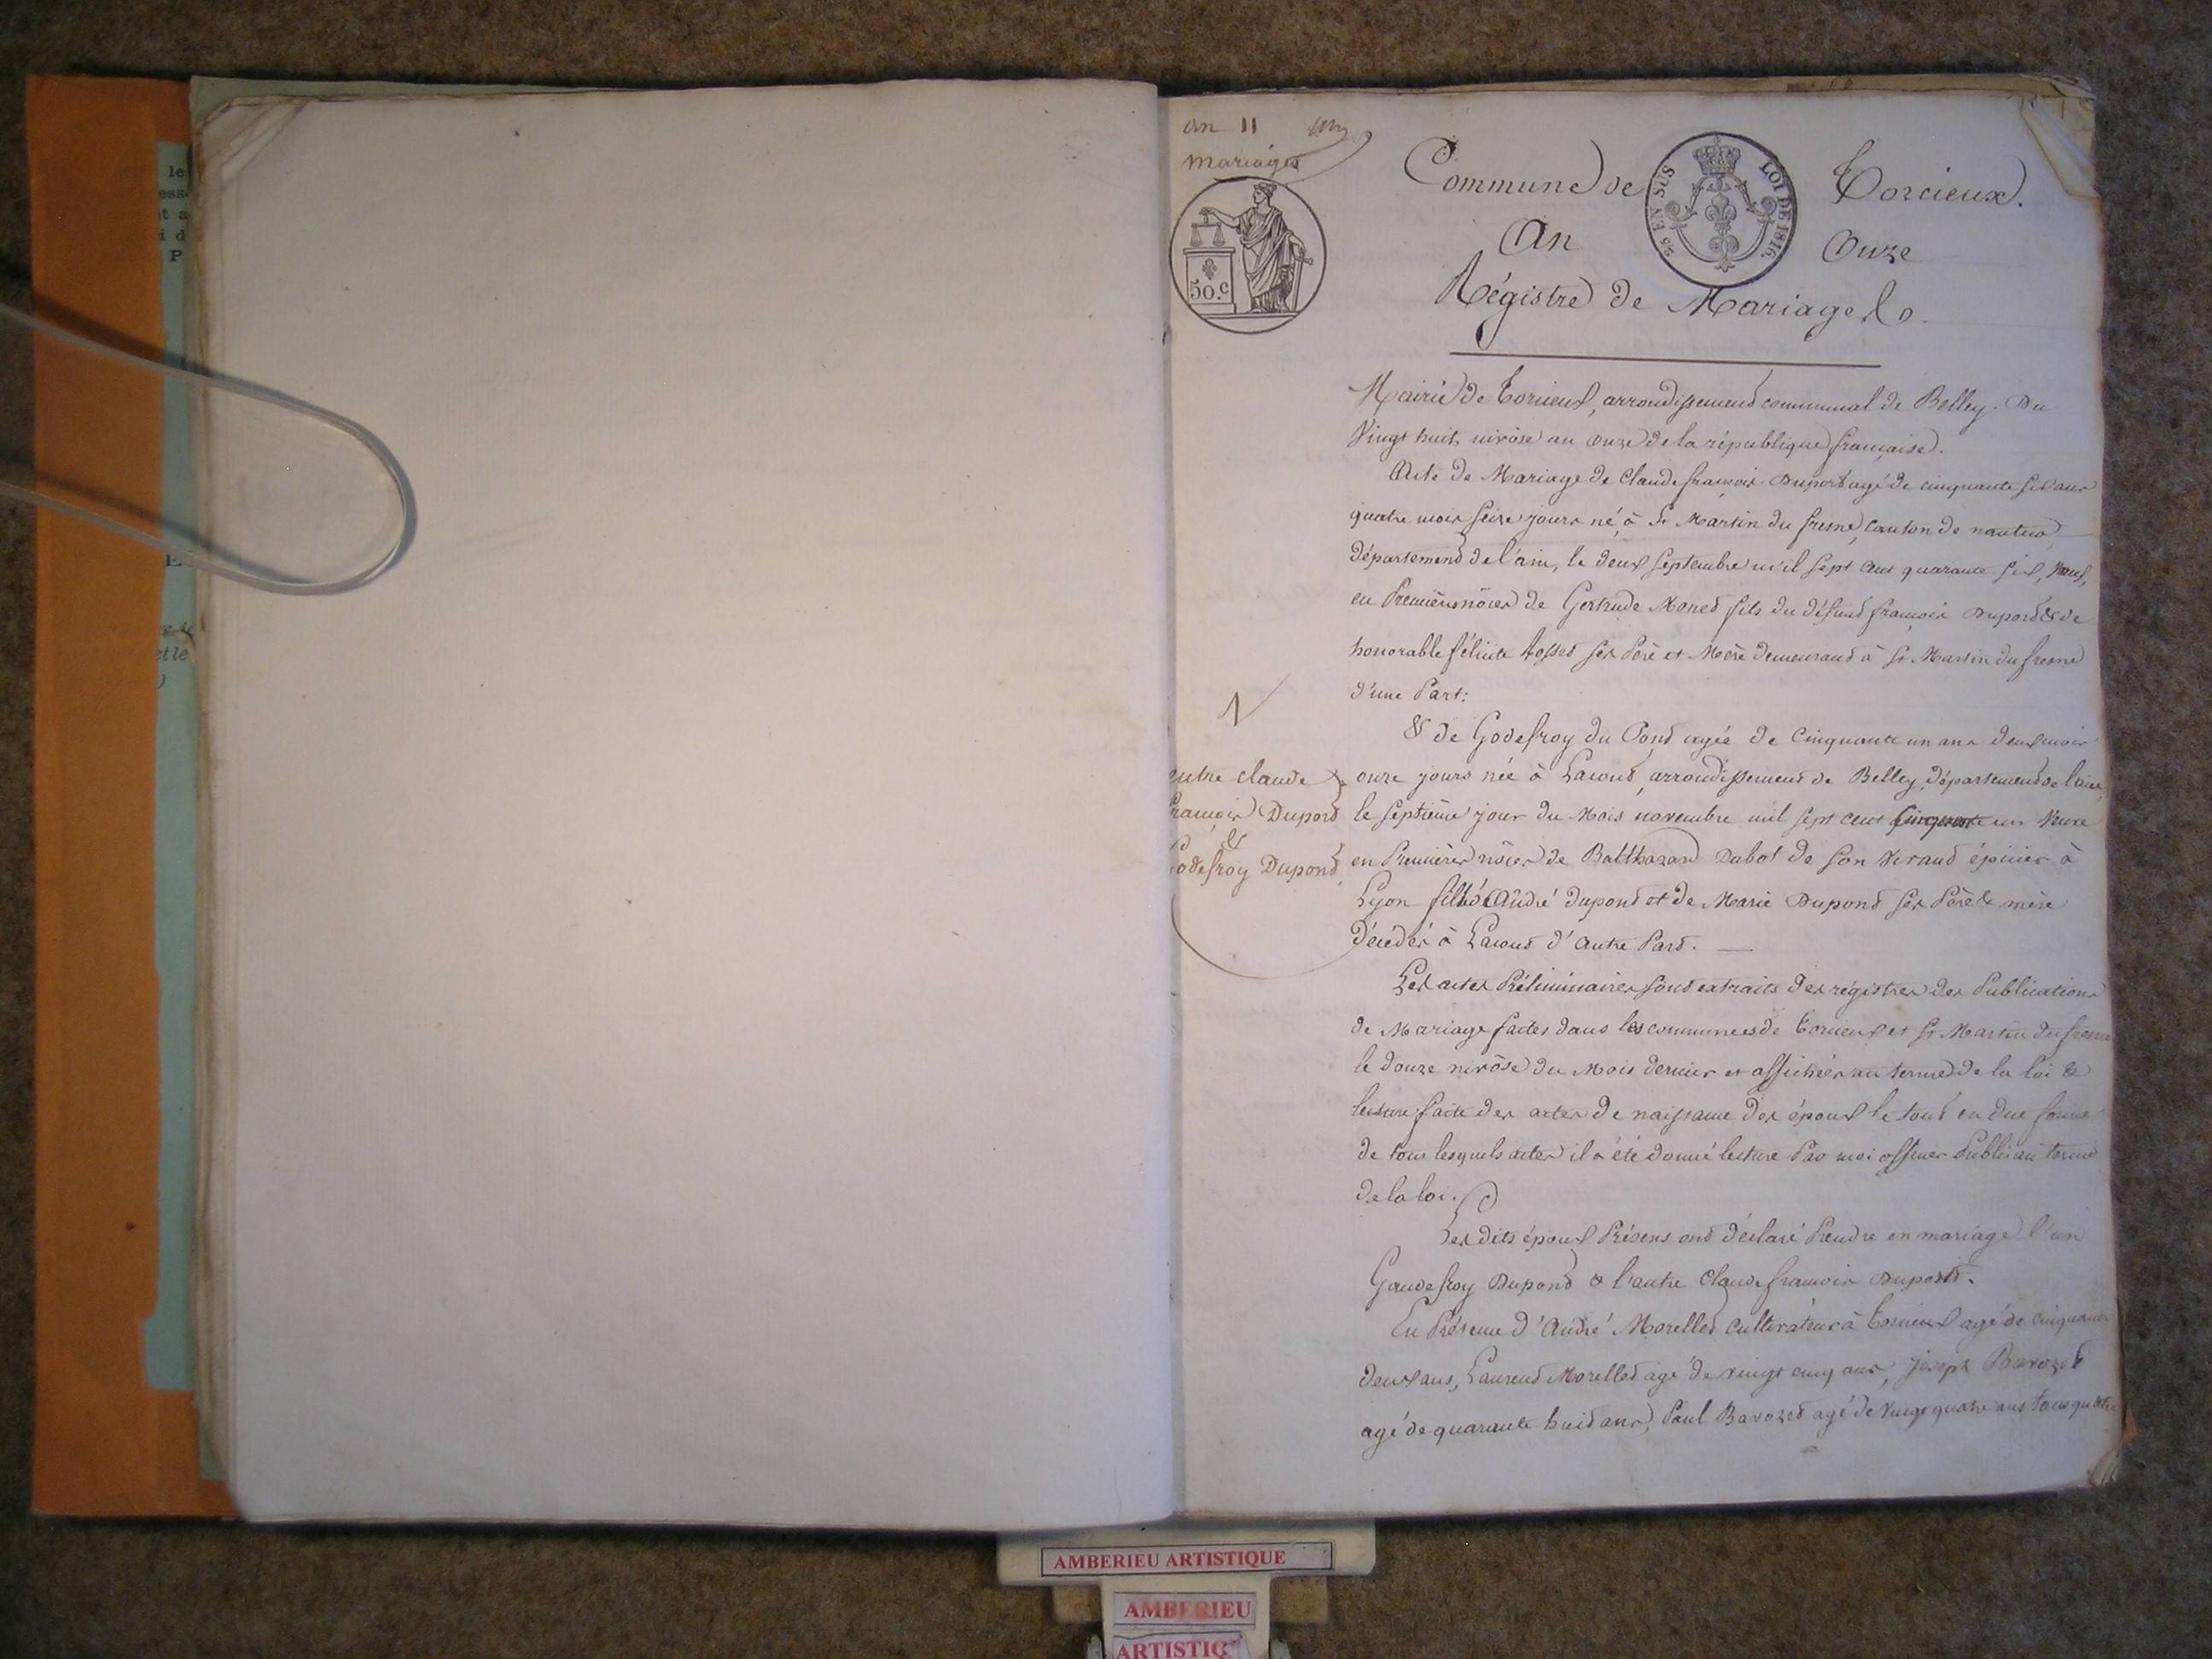 an 11
mariages
Commune de Torcieux.
An Onze
Régistre de Mariages.
25 EN SUS
LOI DE 1816.
50.c
Mairie de Torcieux, arrondissement communal de Belley. Du
Vingt huit nivôse an onze de la république française.
Acte de Mariage de Claude françois Duport agé de cinquante six ans
quatre mois seize jours né à St Martin du fresne, canton de nantua
département de l'ain, le deux septembre mil sept cent quarante six, Veuf,
en Premières nôces de Gertrude Moned fils du défund françois Duport & de
honorable félicité ses Père et Mère demeurand à St Martin du fresne
d'une Part:
& de Godefroy du Pond agée de Cinquante un ans deux mois
onze jours née à Lacoud, arrondissement de Belley, département de l'ain,
le septième jour du Mois novembre mil sept cent cinquante un Veuve
en Premières nôces de Balthazard Dubot de son Vivand épicier à
Lyon fille d'André dupond et de Marie Dupond ses Père & mère
décédés à Lacoud d'autre Pard.
entre claude
françois Dupord
&
Godefroy Dupond
Les actes Préliminaires sont extraits des régistres des Publications
de Mariage faites dans les communes de Torcieux et St Martin du fresne
le douze nivôse du Mois dernier et affichées au terme de la loi &
lecture faite des actes de naissance des époux le tout en due forme
de tous lesquels actes il a été donné lecture Par moi officier Public au terme
de la loi.
Les dits époux Présens ont déclaré Prendre en mariage l'un
Gaudefroy Dupond & l'autre Claude françois Duport.
En Présence d'André Morelled cultivateur à Torcieux agé de cinquante
deux ans, Laurend Morelled agé de vingt cinq ans, joseph Bavozet
agé de quarante huit ans, Paul Bavozed agé de Vingt quatre ans tous quatre
AMBERIEU ARTISTIQUE
AMBERIEU
ARTISTIQ